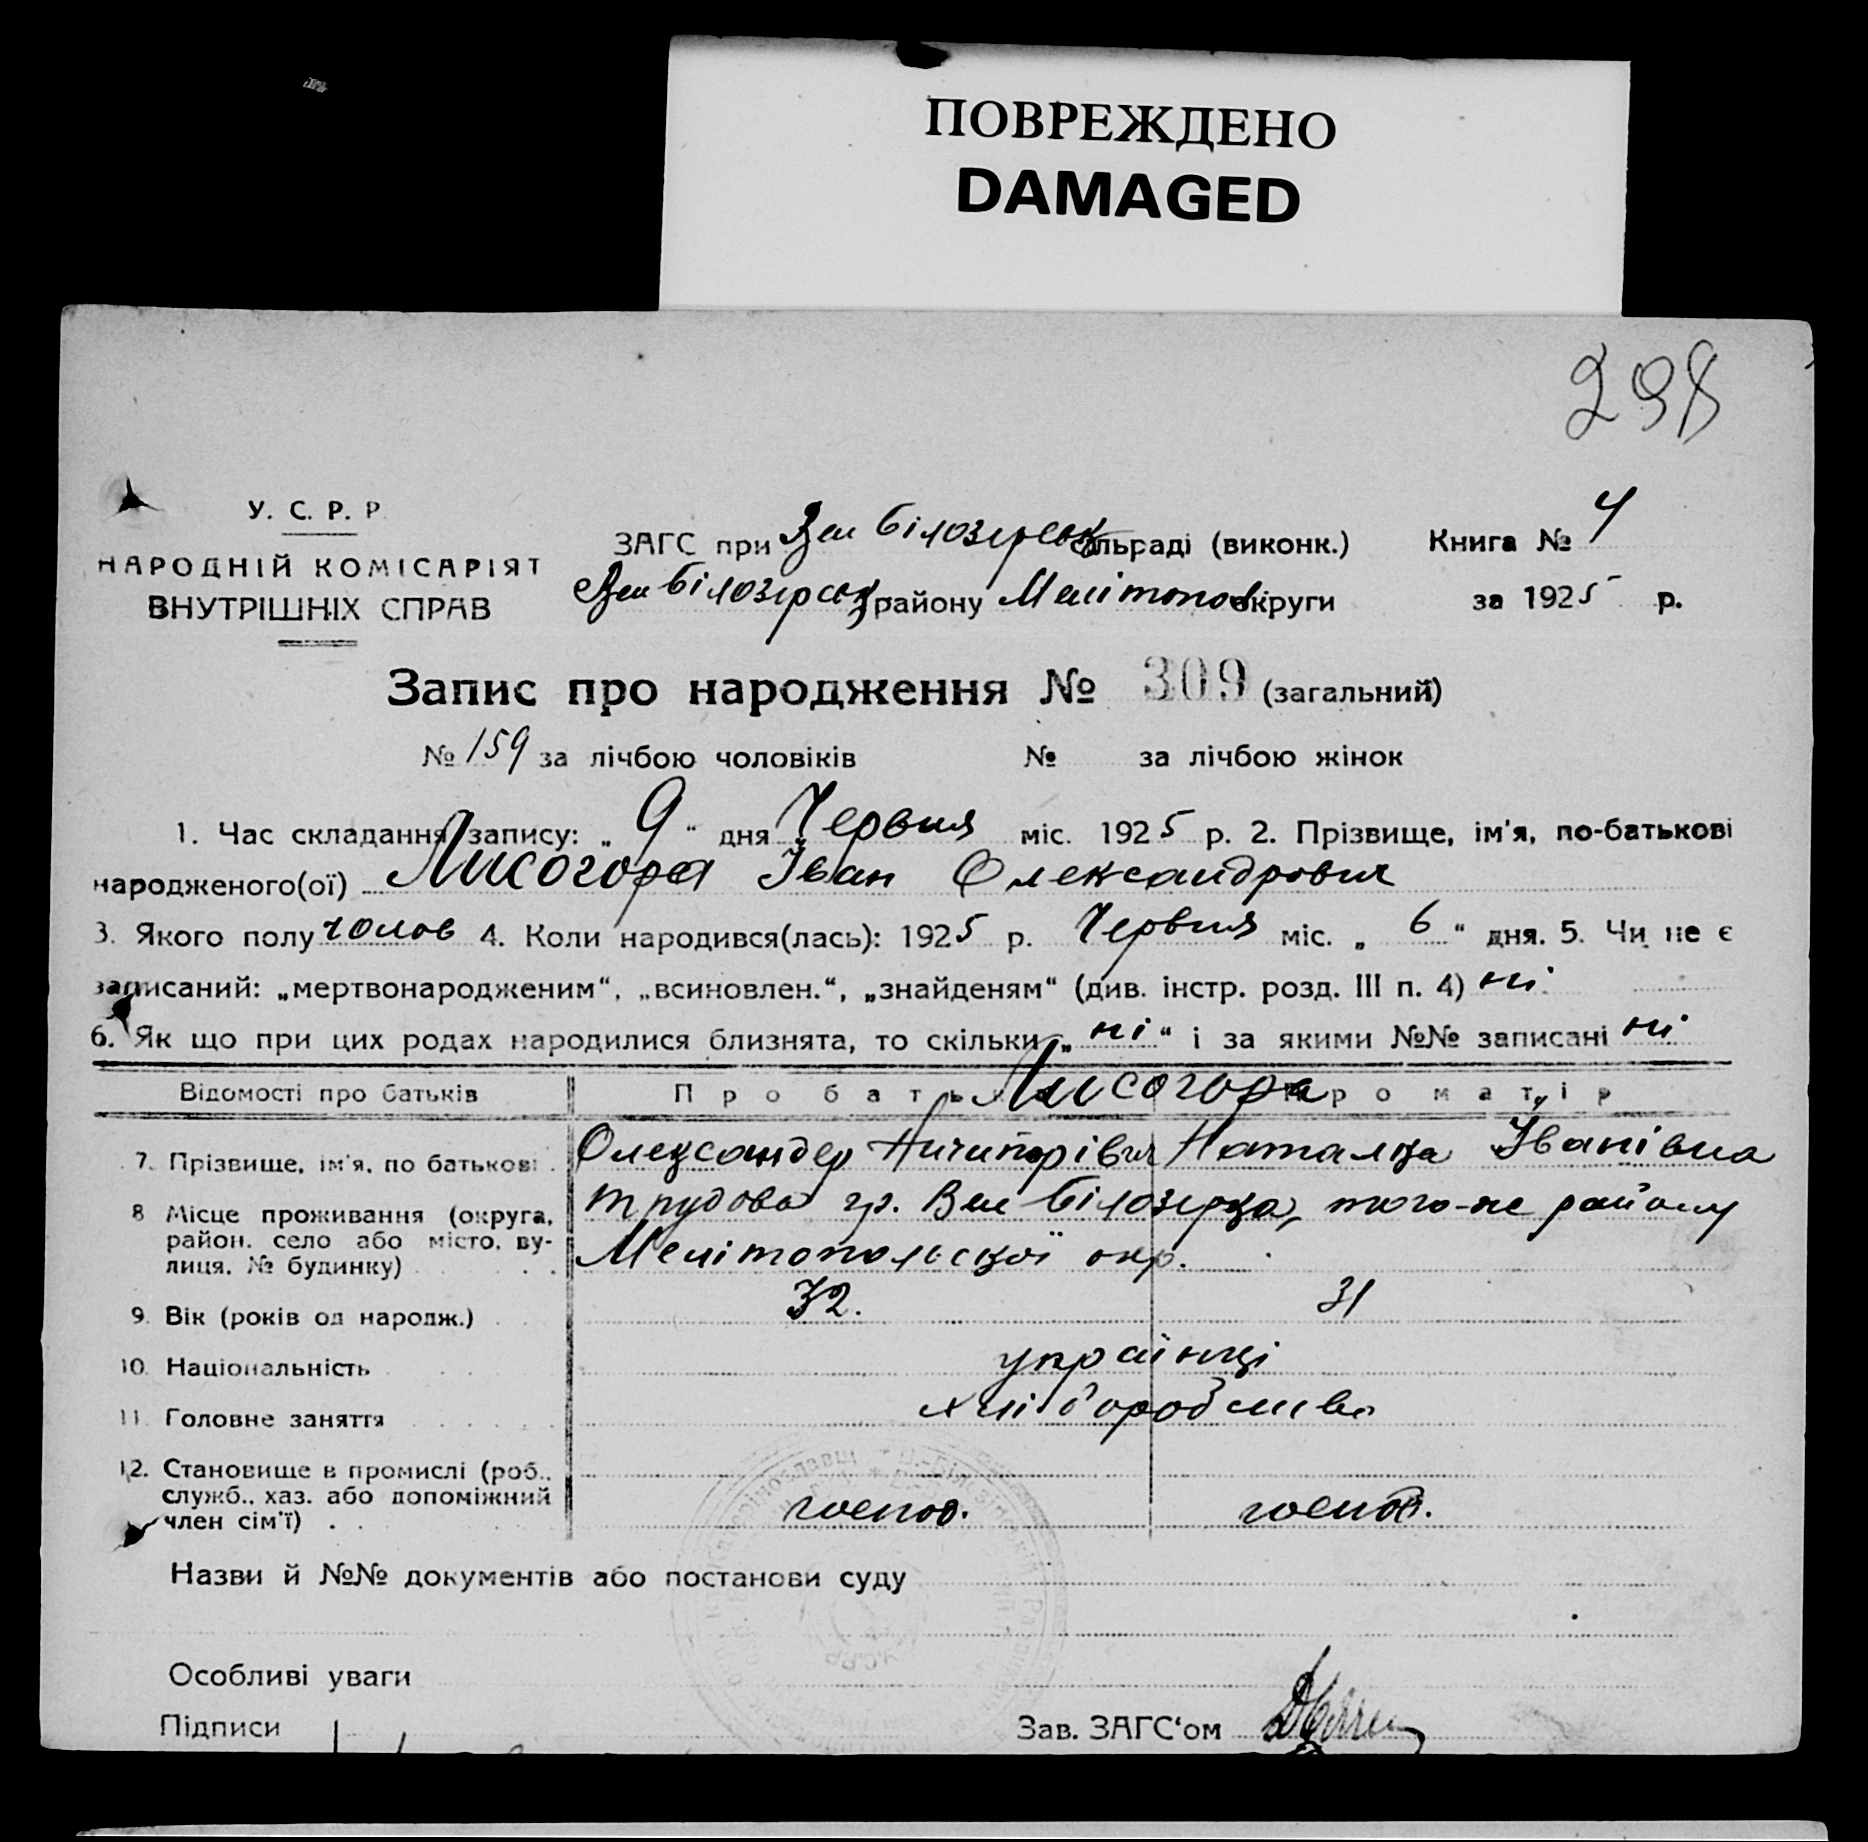 ПОВРЕЖДЕНО
DAMAGED
298
У. С. Р. Р
НАРОДНІЙ КОМІСАРІЯТ
ВНУТРІШНІХ СПРАВ
ЗАГС при Вел Білозерськ сільраді (виконк.) Книга № 4
Вел Білозерськ району Мелітопов округи за 1925 р.
Запис про народження № 309 (загальний)
№ 159 за лічбою чоловіків № за лічбою жінок
1. Час складання запису: „ 9 “ дня Червня міс. 1925 р. 2. Прізвище, ім'я, по-батькові
народженого(ої) Лисогора Іван Олександрович
3. Якого полу чолов 4. Коли народився(лась): 1925 р. Червня міс. „ 6 “ дня. 5. Чи не є
записаний: „мертвонародженим“, „всиновлен.“, „знайденям“ (див. інстр. розд. III п. 4) ні
6. Як що при цих родах народилися близнята, то скільки „ ні “ і за якими №№ записані ні
Відомості про батьків Про батька Про матір
Лисогора
7. Прізвище, ім'я, по батькові Олександер Ничипорівич Наталка Іванівна
8 Місце проживання (округа, район, село або місто, вулиця, № будинку) Трудова гр. Вел Білозерка, того-же району
Мелітопольської окр.
9. Вік (років од народж.) 32. 31
10. Національність українці
11. Головне заняття хліборобство
12. Становище в промислі (роб..
служб., хаз. або допоміжний
член сім'ї) господ. господ.
Назви й №№ документів або постанови суду
Особливі уваги
Підписи Зав. ЗАГС‘ом